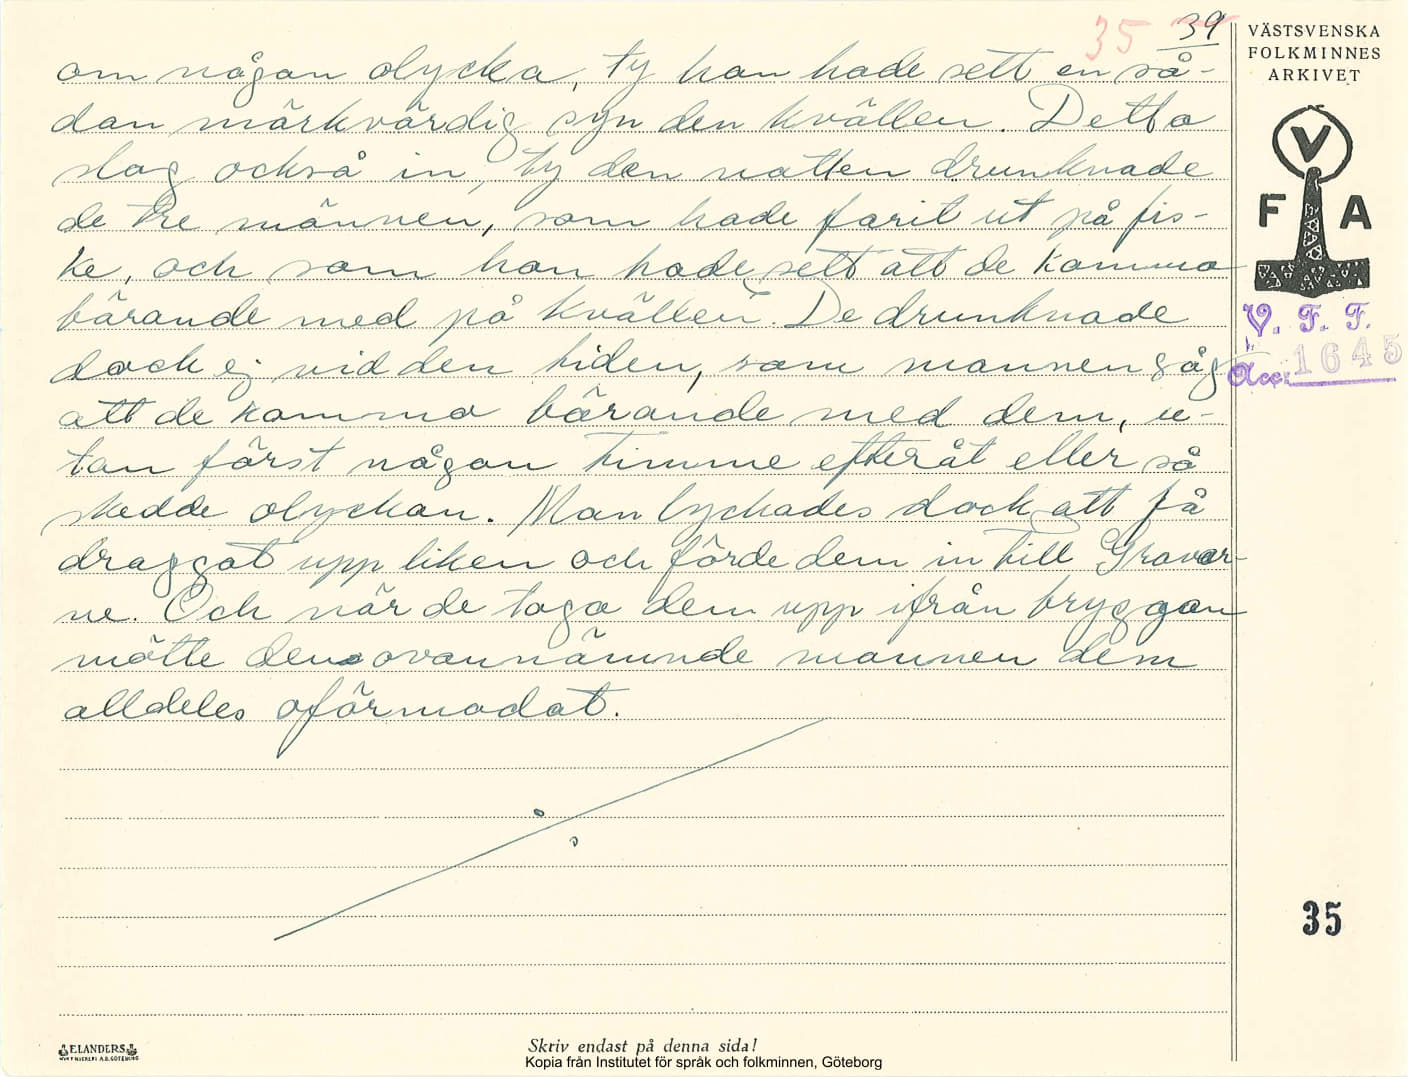 35 39
om någon olycka, ty han hade sett en så-
dan märkvärdig syn den kvällen. Detta
slog också in, ty den natten drunknade
de tre männen, som hade farit ut på fis-
ke, och som han hade sett att de kommo
bärande med på kvällen. De drunknade
dock ej vid den tiden, som mannen såg
att de kommo bärande med dem, u-
tan först någon timme efteråt eller så
skedde olyckan. Man lyckades dock att få
draggat upp liken och förde dem in till Gravar-
ne. Och när de togo dem upp ifrån bryggan
mötte den ovannämnde mannen dem
alldeles oförmodat.
VÄSTSVENSKA
FOLKMINNES
ARKIVET
V
F A
V. F. F.
Acc: 1645
35
ELANDERS
Skriv endast på denna sida!
Kopia från Institutet för språk och folkminnen, Göteborg